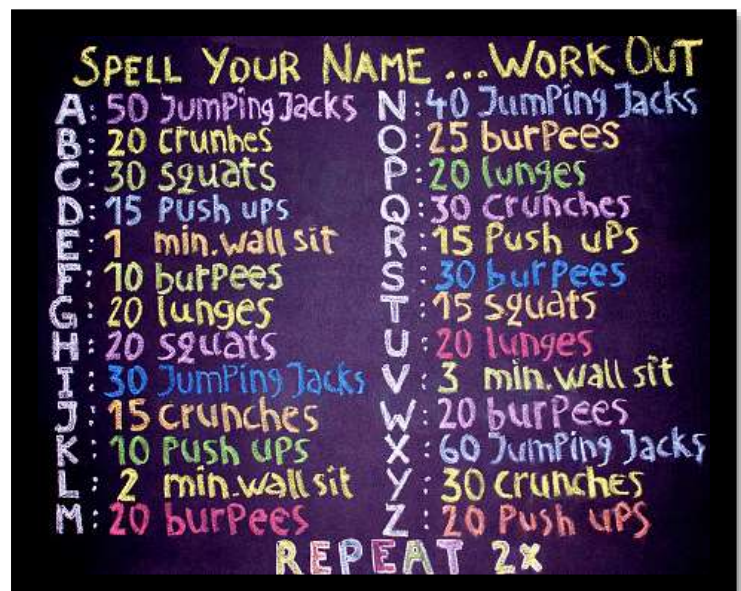 SPELL YOUR NAME ...WORK OUT
A: 50 JumPing Jacks
B: 20 crunhes
C: 30 squats
D: 15 Push ups
E: 1 min.wall sit
F: 10 burpees
G: 20 lunges
H: 20 squats
I: 30 JumPing Jacks
J: 15 crunches
K: 10 Push ups
L: 2 min.wall sit
M: 20 burPees
N: 40 JumPing Jacks
O: 25 burpees
P: 20 lunges
Q: 30 crunches
R: 15 Push uPs
S: 30 burpees
T: 15 squats
U: 20 lunges
V: 3 min.wall sit
W: 20 burPees
X: 60 JumPing Jacks
Y: 30 crunches
Z: 20 Push uPs
REPEAT 2x